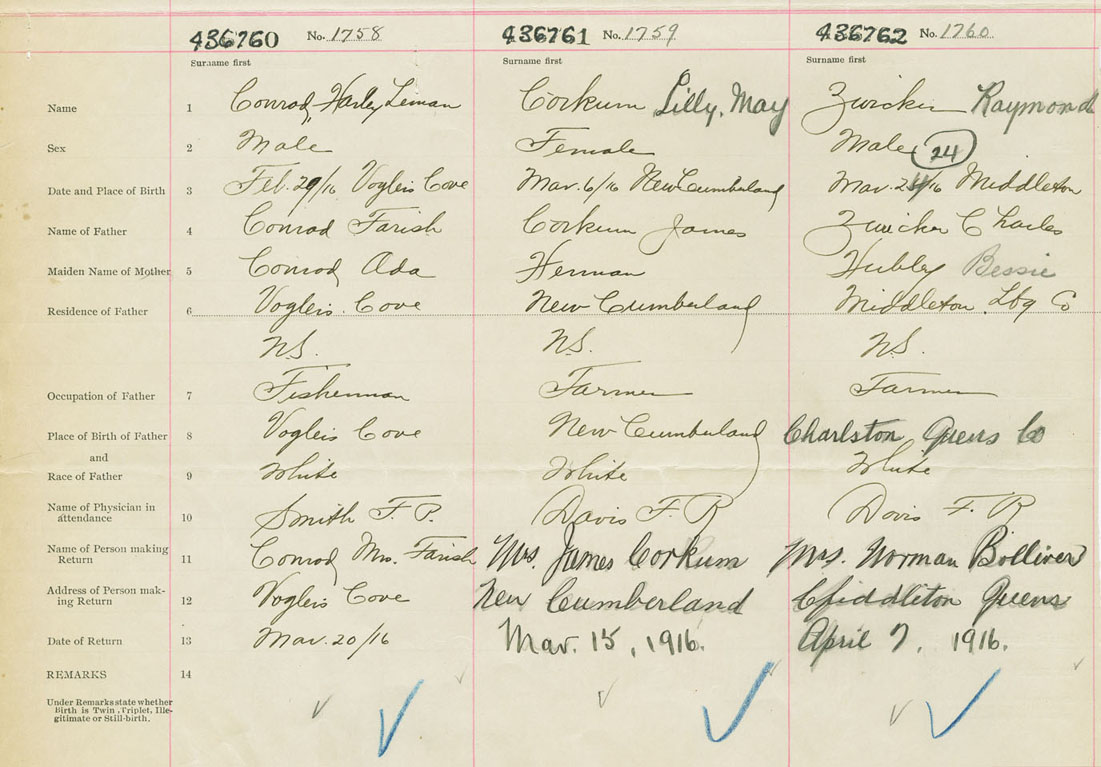 436760 No. 1758 436761 No. 1759 436762 No. 1760
Surname first Surname first Surname first
Name 1 Conrad, Harley Leman Corkum Lilly, May Zwicker Raymond
Sex 2 Male Female Male 24
Date and Place of Birth 3 Feb. 29/16 Voglers Cove Mar. 6/16 New Cumberland Mar. 24/16 Middleton
Name of Father 4 Conrad Farish Corkum James Zwicker Charles
Maiden Name of Mother 5 Conrad Ada Herman Hubley Bessie
Residence of Father 6 Voglers Cove New Cumberland Middleton Lbg Co
N.S. N.S. N.S.
Occupation of Father 7 Fisherman Farmer Farmer
Place of Birth of Father 8 Voglers Cove New Cumberland Charlston Queens Co
and
Race of Father 9 White White White
Name of Physician in attendance 10 Smith F. P. Davis F. R Davis F. R
Name of Person making Return 11 Conrad Mrs. Farish Mrs. James Corkum Mrs. Norman Bolliver
Address of Person making Return 12 Voglers Cove New Cumberland Queens
Date of Return 13 Mar. 20/16 Mar. 15, 1916. April 7, 1916.
REMARKS 14
Under Remarks state whether
Birth is Twin, Triplet, Ille-
gitimate or Still-birth.